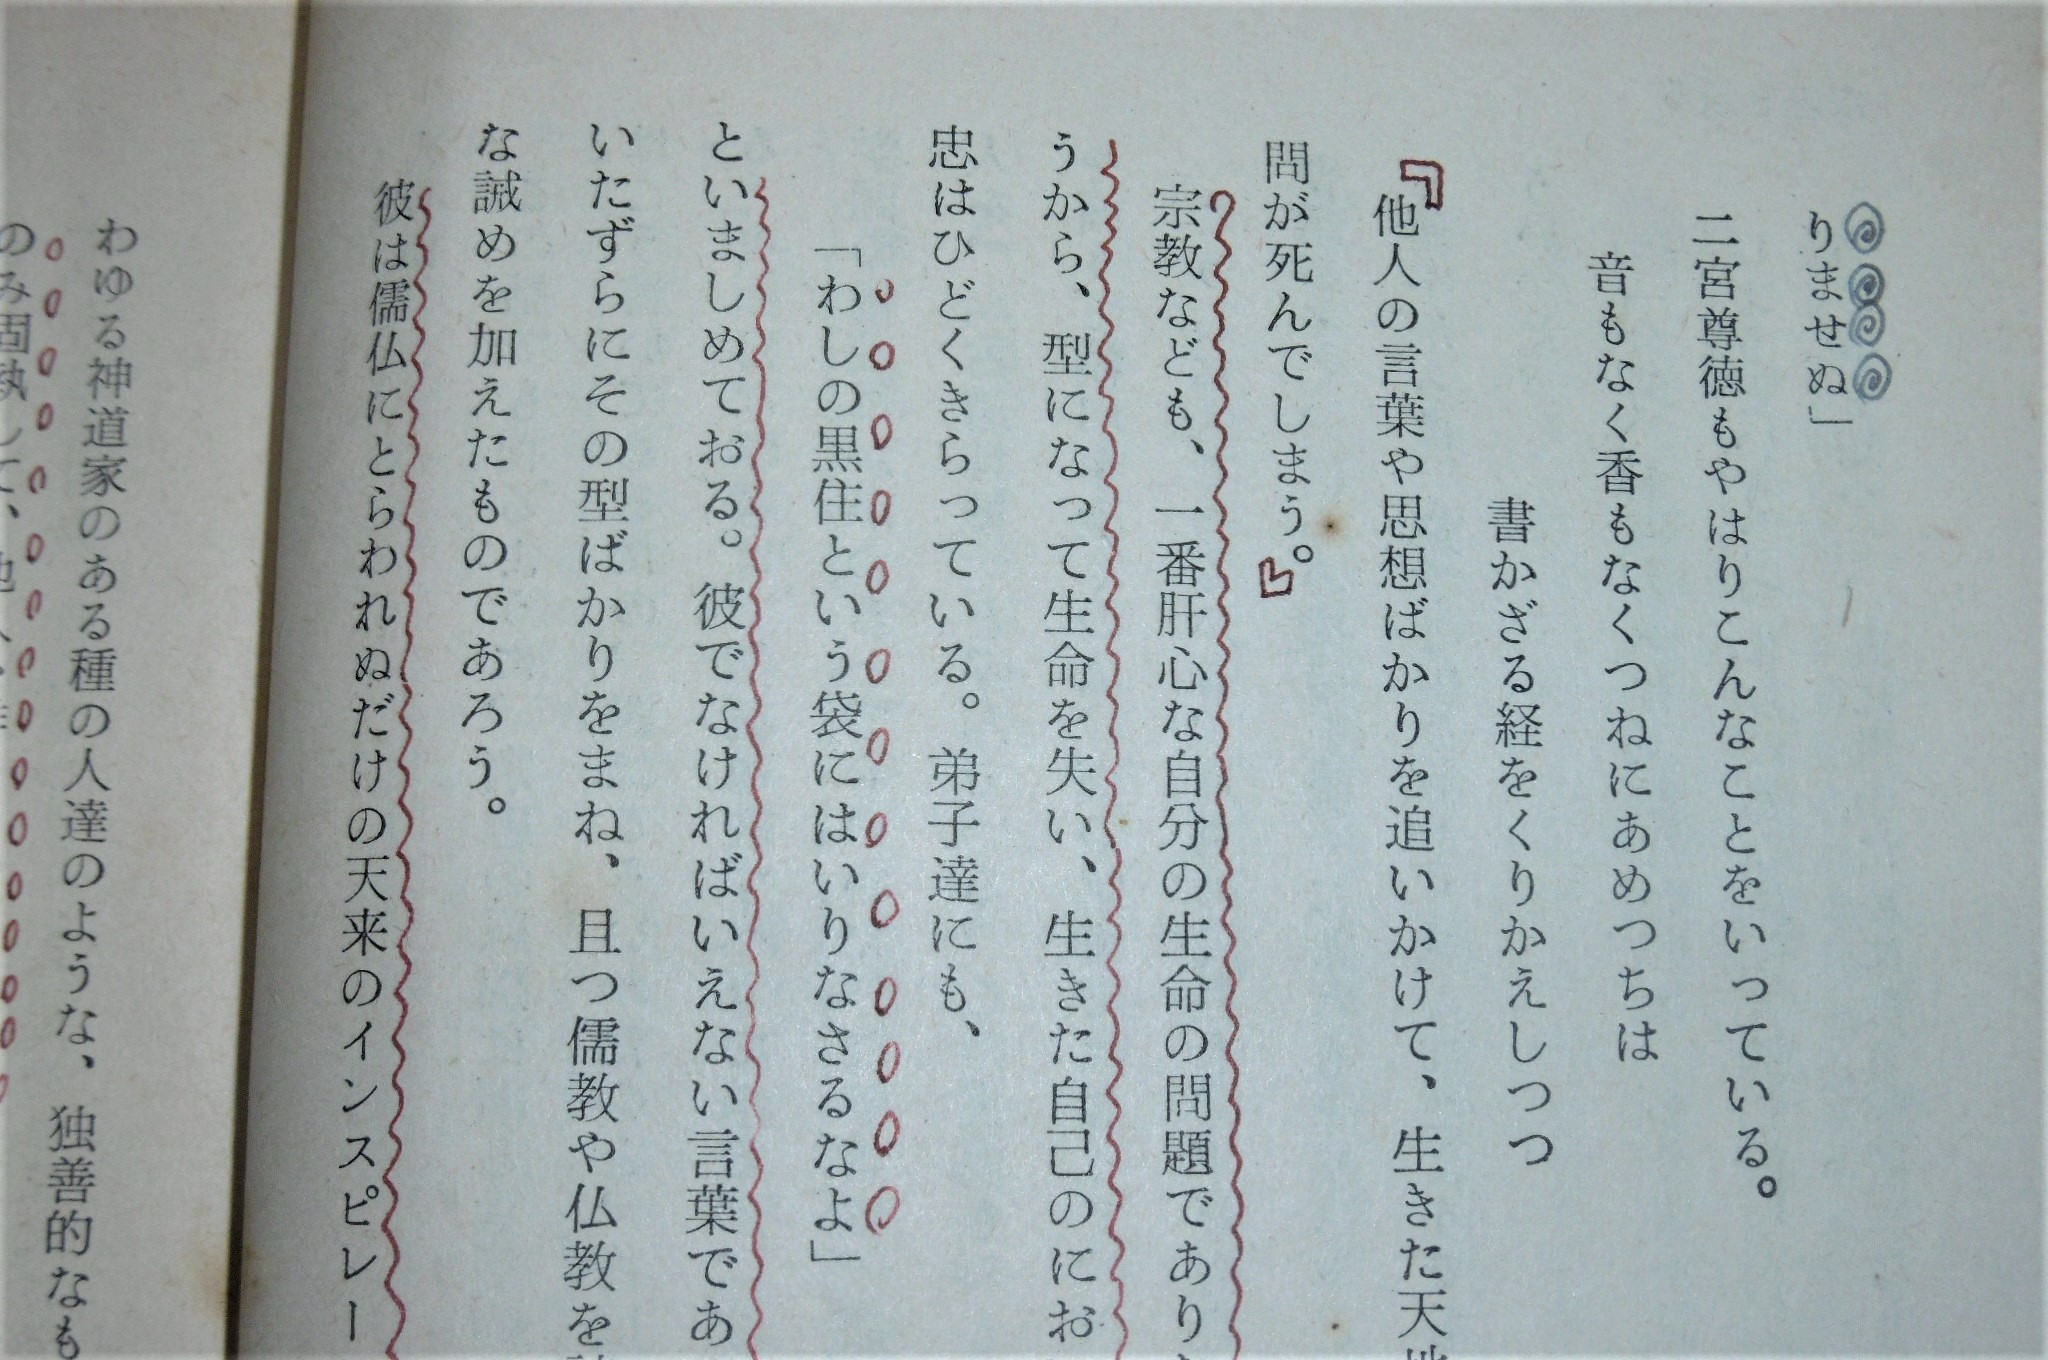 りませぬ」
二宮尊徳もやはりこんなことをいっている。
音もなく香もなくつねにあめつちは
書かざる経をくりかえしつつ
『他人の言葉や思想ばかりを追いかけて、生きた天地
問が死んでしまう。』
宗教なども、一番肝心な自分の生命の問題であり
うから、型になって生命を失い、生きた自己のにお
忠はひどくきらっている。弟子達にも、
「わしの黒住という袋にはいりなさるなよ」
といましめておる。彼でなければいえない言葉であ
いたずらにその型ばかりをまね、且つ儒教や仏教を
な誡めを加えたものであろう。
彼は儒仏にとらわれぬだけの天来のインスピレー
わゆる神道家のある種の人達のような、独善的なも
のみ固執して、他人